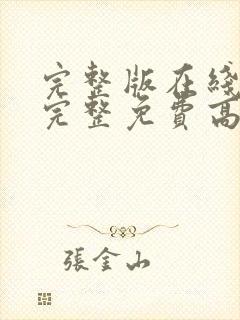 完整版在綫
完整免費高
張金山